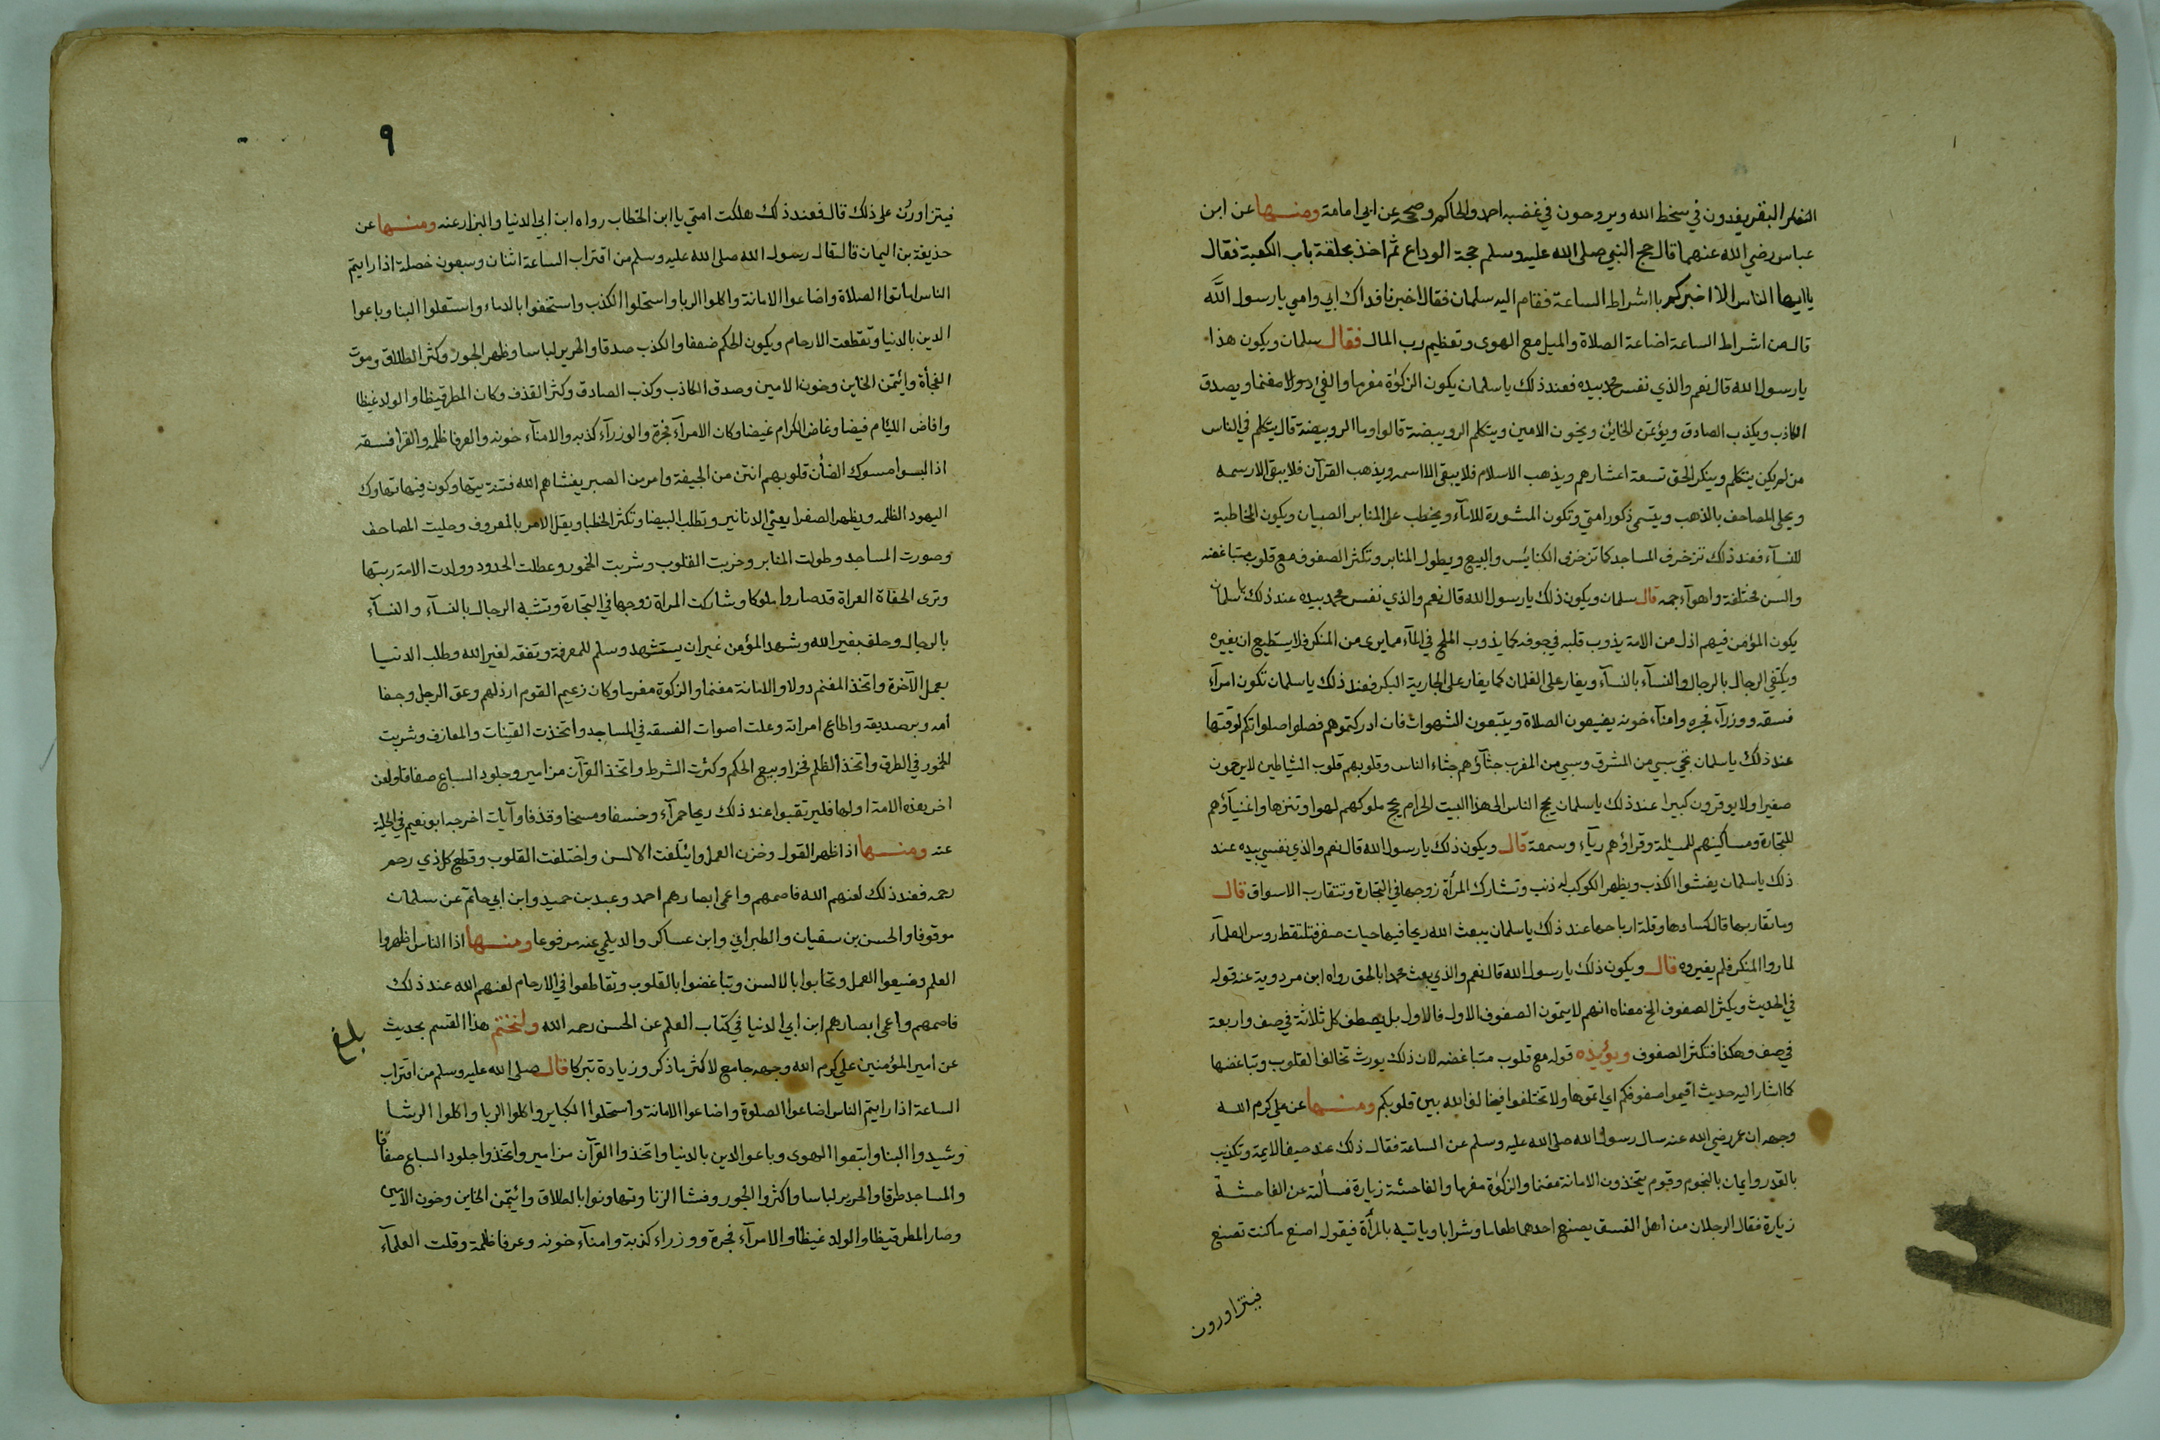 البقر يغدون في سخط الله ويروحون في غضبه احمد والحاكم وصححه عن ابي امامة ومنها عن ابن
عباس رضي الله عنهما قال حج النبي صلى الله عليه وسلم حجة الوداع ثم اخذ بحلقة باب الكعبة فقال
يا ايها الناس الا اخبركم با اشراط الساعة فقام اليه سلمان فقال اخبرنا فداك ابي وامي يا رسول الله
قال من اشراط الساعة اضاعة الصلاة والميل مع الهوى وتعظيم رب المال فقال سلمان ويكون هذا
يا رسول الله قال نعم والذي نفس محمد بيده فعند ذلك يا سلمان يكون الزكوة مغرما والفيء دولا مغنما ويصدق
الكاذب ويكذب الصادق ويؤتمن الخاين ويخون الامين ويتكلم الرويبضة قالوا وما الرويبضة قال يتكلم في الناس
من لم يكن يتكلم وينكر الحق تسعة اعشارهم ويذهب الاسلام فلا يبقى الا اسمه ويذهب القرآن فلا يبقى الا رسمه
ويحلى المصاحف بالذهب ويتسمى ذكور امتي وتكون المشورة للامآء ويخطب على المنابر الصبيان ويكون المخاطبة
للنسآء فعند ذلك تزخرف المساجد كما تزخرف الكنايس والبيع ويطول المنابر وتكثر الصفوف مع قلوب متباغضه
والسن مختلفة واهوآء جمه قال سلمان ويكون ذلك يا رسول الله قال نعم والذي نفس محمد بيده عند ذلك يا سلمان
يكون المؤمن فيهم اذل من الامة يذوب قلبه في جوفه كما يذوب الملح في المآء مما يرى من المنكر فلا يستطيع ان يغيره
ويكتفي الرجال بالرجال والنسآء بالنسآء ويغار على الغلمان كما يغار على الجارية البكر فعند ذلك يا سلمان تكون امرآء
فسقه ووزرآء فجره وامنآء خونه يضيعون الصلاة ويتبعون الشهوات فان ادركتموهم فصلوا صلواتكم لوقتها
عند ذلك يا سلمان تجي سبي من المشرق وسبي من المغرب جثآؤهم جثاء الناس وقلوبهم قلوب الشياطين لا يرحمون
صغيرا ولا يوقرون كبيرا عند ذلك يا سلمان يحج الناس الى هذا البيت الحرام يحج ملوكهم لهوا وتنزها واغنيآؤهم
للتجارة ومساكينهم للمسئلة وقراؤهم ريآء وسمعة قال ويكون ذلك يا رسول الله قال نعم والذي نفسي بيده عند
ذلك يا سلمان يفشوا الكذب ويظهر الكوكب له ذنب وتشارك المرأة زوجها في التجارة وتتقارب الاسواق قال
وما تقاربها قال كسادها وقلة ارباحها عند ذلك يا سلمان يبعث الله ريحا فيها حيات صفر فتلتقط روس العلمآء
لما روا المنكر فلم يغيروه قال ويكون ذلك يا رسول الله قال نعم والذي بعث محمدا بالحق رواه ابن مردوية عنه قوله
في الحديث ويكثر الصفوف الخ معناه انهم لا يتمون الصفوف الاول فالاول بل يصطف كل ثلاثة في صف واربعة
في صف وهكذا فتكثر الصفوف ويؤيده قوله مع قلوب متباغضه لان ذلك يورث تخالف القلوب وتباغضها
كما اشار اليه حديث اقيموا صفوفكم اي اتموها ولا تختلفوا فيخالف الله بين قلوبكم ومنها عن علي كرم الله
وجهه ان عمر رضي الله عنه سال رسول الله صلى الله عليه وسلم عن الساعة فقال ذلك عند حيف الايمة وتكذيب
بالقدر وايمان بالنجوم وقوم يتخذون الامانة مغنما والزكوة مغرما والفاحشة زيارة فسألته عن الفاحشة
زيارة فقال الرجلان من اهل الفسق يصنع احدهما طعاما وشرابا وياتيه بالمرأة فيقول اصنع ما كنت تصنع
فيتزاورون
٩
فيتزاورون على ذلك قال فعند ذلك هلكت امتي يا ابن الخطاب رواه ابن ابي الدنيا والبزار عنه ومنها عن
حذيفة بن اليمان قال قال رسول الله صلى الله عليه وسلم من اقتراب الساعة اثنان وسبعون خصلة اذا رايتم
الناس اماتوا الصلاة واضاعوا الامانة واكلوا الربا واستحلوا الكذب واستخفوا بالدماء واستعلوا البنا وباعوا
الدين بالدنيا وتقطعت الارحام ويكون الحكم ضعفا والكذب صدقا والحرير لباسا وظهر الجور وكثر الطلاق وموت
الفجأة وائتمن الخاين وخون الامين وصدق الكاذب وكذب الصادق وكثر القذف وكان المطر قيظا والولد غيظا
وافاض اللئام فيضا وغاض الكرام غيضا وكان الامرآء فجرة والوزرآء كذبه والامنآء خونه والعرفا ظلمه والقرا فسقه
اذا لبسوا مسوك الضأن قلوبهم انتن من الجيفة وامر من الصبر يغشاهم الله فتنة
اليهود الظلمه ويظهر الصفرا يعني الدنانير وتطلب البيضا وتكثر الخطبا ويقل الامر بالمعروف وحليت المصاحف
وصورت المساجد وطولت المنابر وخربت القلوب وشربت الخمور وعطلت الحدود وولدت الامة ربتها
وترى الحفاة العراة قد صاروا ملوكا وشاركت المراة زوجها في التجارة وتشبه الرجال بالنسآء والنسآء
بالرجال وحلف بغير الله وشهد المؤمن غير ان يستشهد وسلم للمعرفة وتفقه لغير الله وطلب الدنيا
بعمل الآخرة واتخذ المغنم دولا والامانة مغنما والزكوة مغرما وكان زعيم القوم ارذلهم وعق الرجل وجفا
امه وبر صديقه واطاع امراته وعلت اصوات الفسقه في المساجد واتخذت القينات والمعازف وشربت
الخمور في الطرق واتخذ الظلم فخرا وبيع الحكم وكثرت الشرط واتخذ القرآن مزامير وجلود السباع صفافا ولعن
اخر هذه الامة اولها فليرتقبوا عند ذلك ريحا حمرآء وخسفا ومسخا وقذفا وآيات اخرجه ابو نعيم في الحلية
عنه ومنها اذا ظهر القول وخزن العمل وائتلفت الالسن واختلفت القلوب وقطع كل ذي رحم
رحمه فعند ذلك لعنهم الله فاصمهم واعمى ابصارهم احمد وعبد بن حميد وابن ابي حاتم عن سلمان
موقوفا والحسن بن سفيان والطبراني وابن عساكر والديلمي عنه مرفوعا ومنها اذا الناس اظهروا
العلم وضيعوا العمل وتحابوا بالالسن وتباغضوا بالقلوب وتقاطعوا في الارحام لعنهم الله عند ذلك
فاصمهم واعمى ابصارهم ابن ابي الدنيا في كتاب العلم عن الحسن رحمه الله ولنختم هذا القسم بحديث
بلغ
عن امير المؤمنين علي كرم الله وجهه جامع لاكثر ما ذكر وزيادة تبركا قال صلى الله عليه وسلم من اقتراب
الساعة اذا رايتم الناس اضاعوا الصلوة واضاعوا الامانة واستحلوا الكباير واكلوا الربا واكلوا الرشا
وشيدوا البنا واتبعوا الهوى وباعوا الدين بالدنيا واتخذوا القرآن مزامير واتخذوا جلود السباع صفافا
والمساجد طرقا والحرير لباسا واكثروا الجور وفشا الزنا وتهاونوا بالطلاق وائتمن الخاين وخون الامين
وصار المطر قيظا والولد غيظا والامرآء فجرة ووزراء كذبة وامنآء خونه وعرفا ظلمة وقلت العلمآء